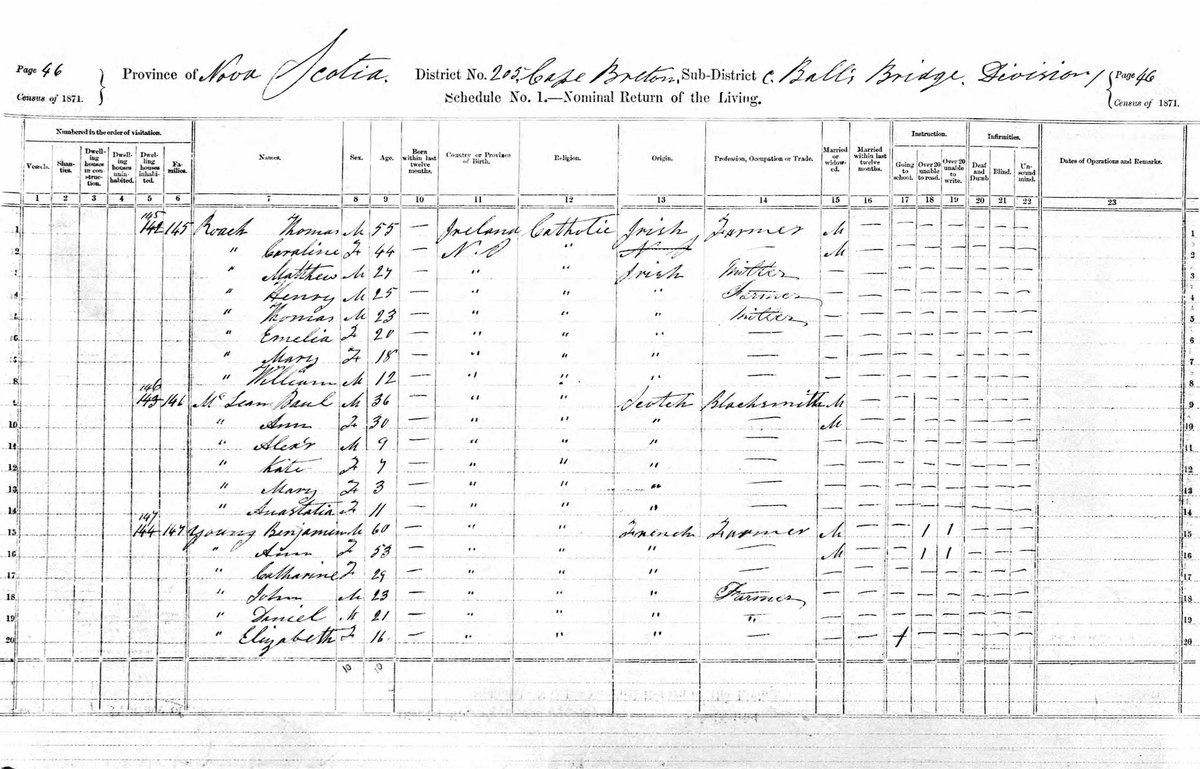 Page 46 Province of Nova Scotia. District No. 205, Cape Breton, Sub-District C Ball's Bridge. Division 1 Page 46
Census of 1871. Schedule No. 1.—Nominal Return of the Living. Census of 1871.
Numbered in the order of visitation. Instruction. Infirmities.
Vessels. Shanties. Dwelling houses in construction. Dwelling houses uninhabited. Dwelling houses inhabited. Families. Names. Sex. Age. Born within last twelve months. Country or Province of Birth. Religion. Origin. Profession, Occupation or Trade. Married or widowed. Married within last twelve months. Going to school. Over 20 unable to read. Over 20 unable to write. Deaf and Dumb. Blind. Unsound mind. Dates of Operations and Remarks.
1 2 3 4 5 6 7 8 9 10 11 12 13 14 15 16 17 18 19 20 21 22 23
1 145 142 145 Roach Thomas M 55 — Ireland Catholic Irish Farmer M — — — — — — — 1
2 " Caroline F 44 — N.S " M — — — — — — — 2
" Matthew M 27 — " " Irish — — — — — — — —
4 " Henry M 25 — " " " Farmer — — — — — — — — 4
5 " Thomas M 23 — " " " — — — — — — — — 5
6 " Emelia F 20 — " " " — — — — — — — — — 6
" Mary F 18 — " " " — — — — — — — — —
8 " William M 12 — " " " — — — — — — — — — 8
146 143 146 McLean Paul M 36 — " " Scotch Blacksmith M — — — — — — — 9
10 " Ann F 30 — " " " — M — — — — — — — 10
11 " Alexr M 9 — " " " — — — — — — — — — 11
12 " Kate F 7 — " " " — — — — — — — — — 12
13 " Mary F 3 — " " " — — — — — — — — — 13
14 " Anastatia F 11 — " " " — — — — — — — — — 14
15 147 144 147 Young Benjamin M 60 — " " French Farmer M — — 1 1 — — — 15
16 " Ann F 53 — " " " — M — — 1 1 — — — 16
17 " Catharine F 29 — " " " — — — — — — — — — 17
18 " John M 23 — " " " Farmer — — — — — — — — 18
19 " Daniel M 21 — " " " " — — — — — — — — 19
20 " Elizabeth F 16 — " " " — — — 1 — — — — — 20
10 10